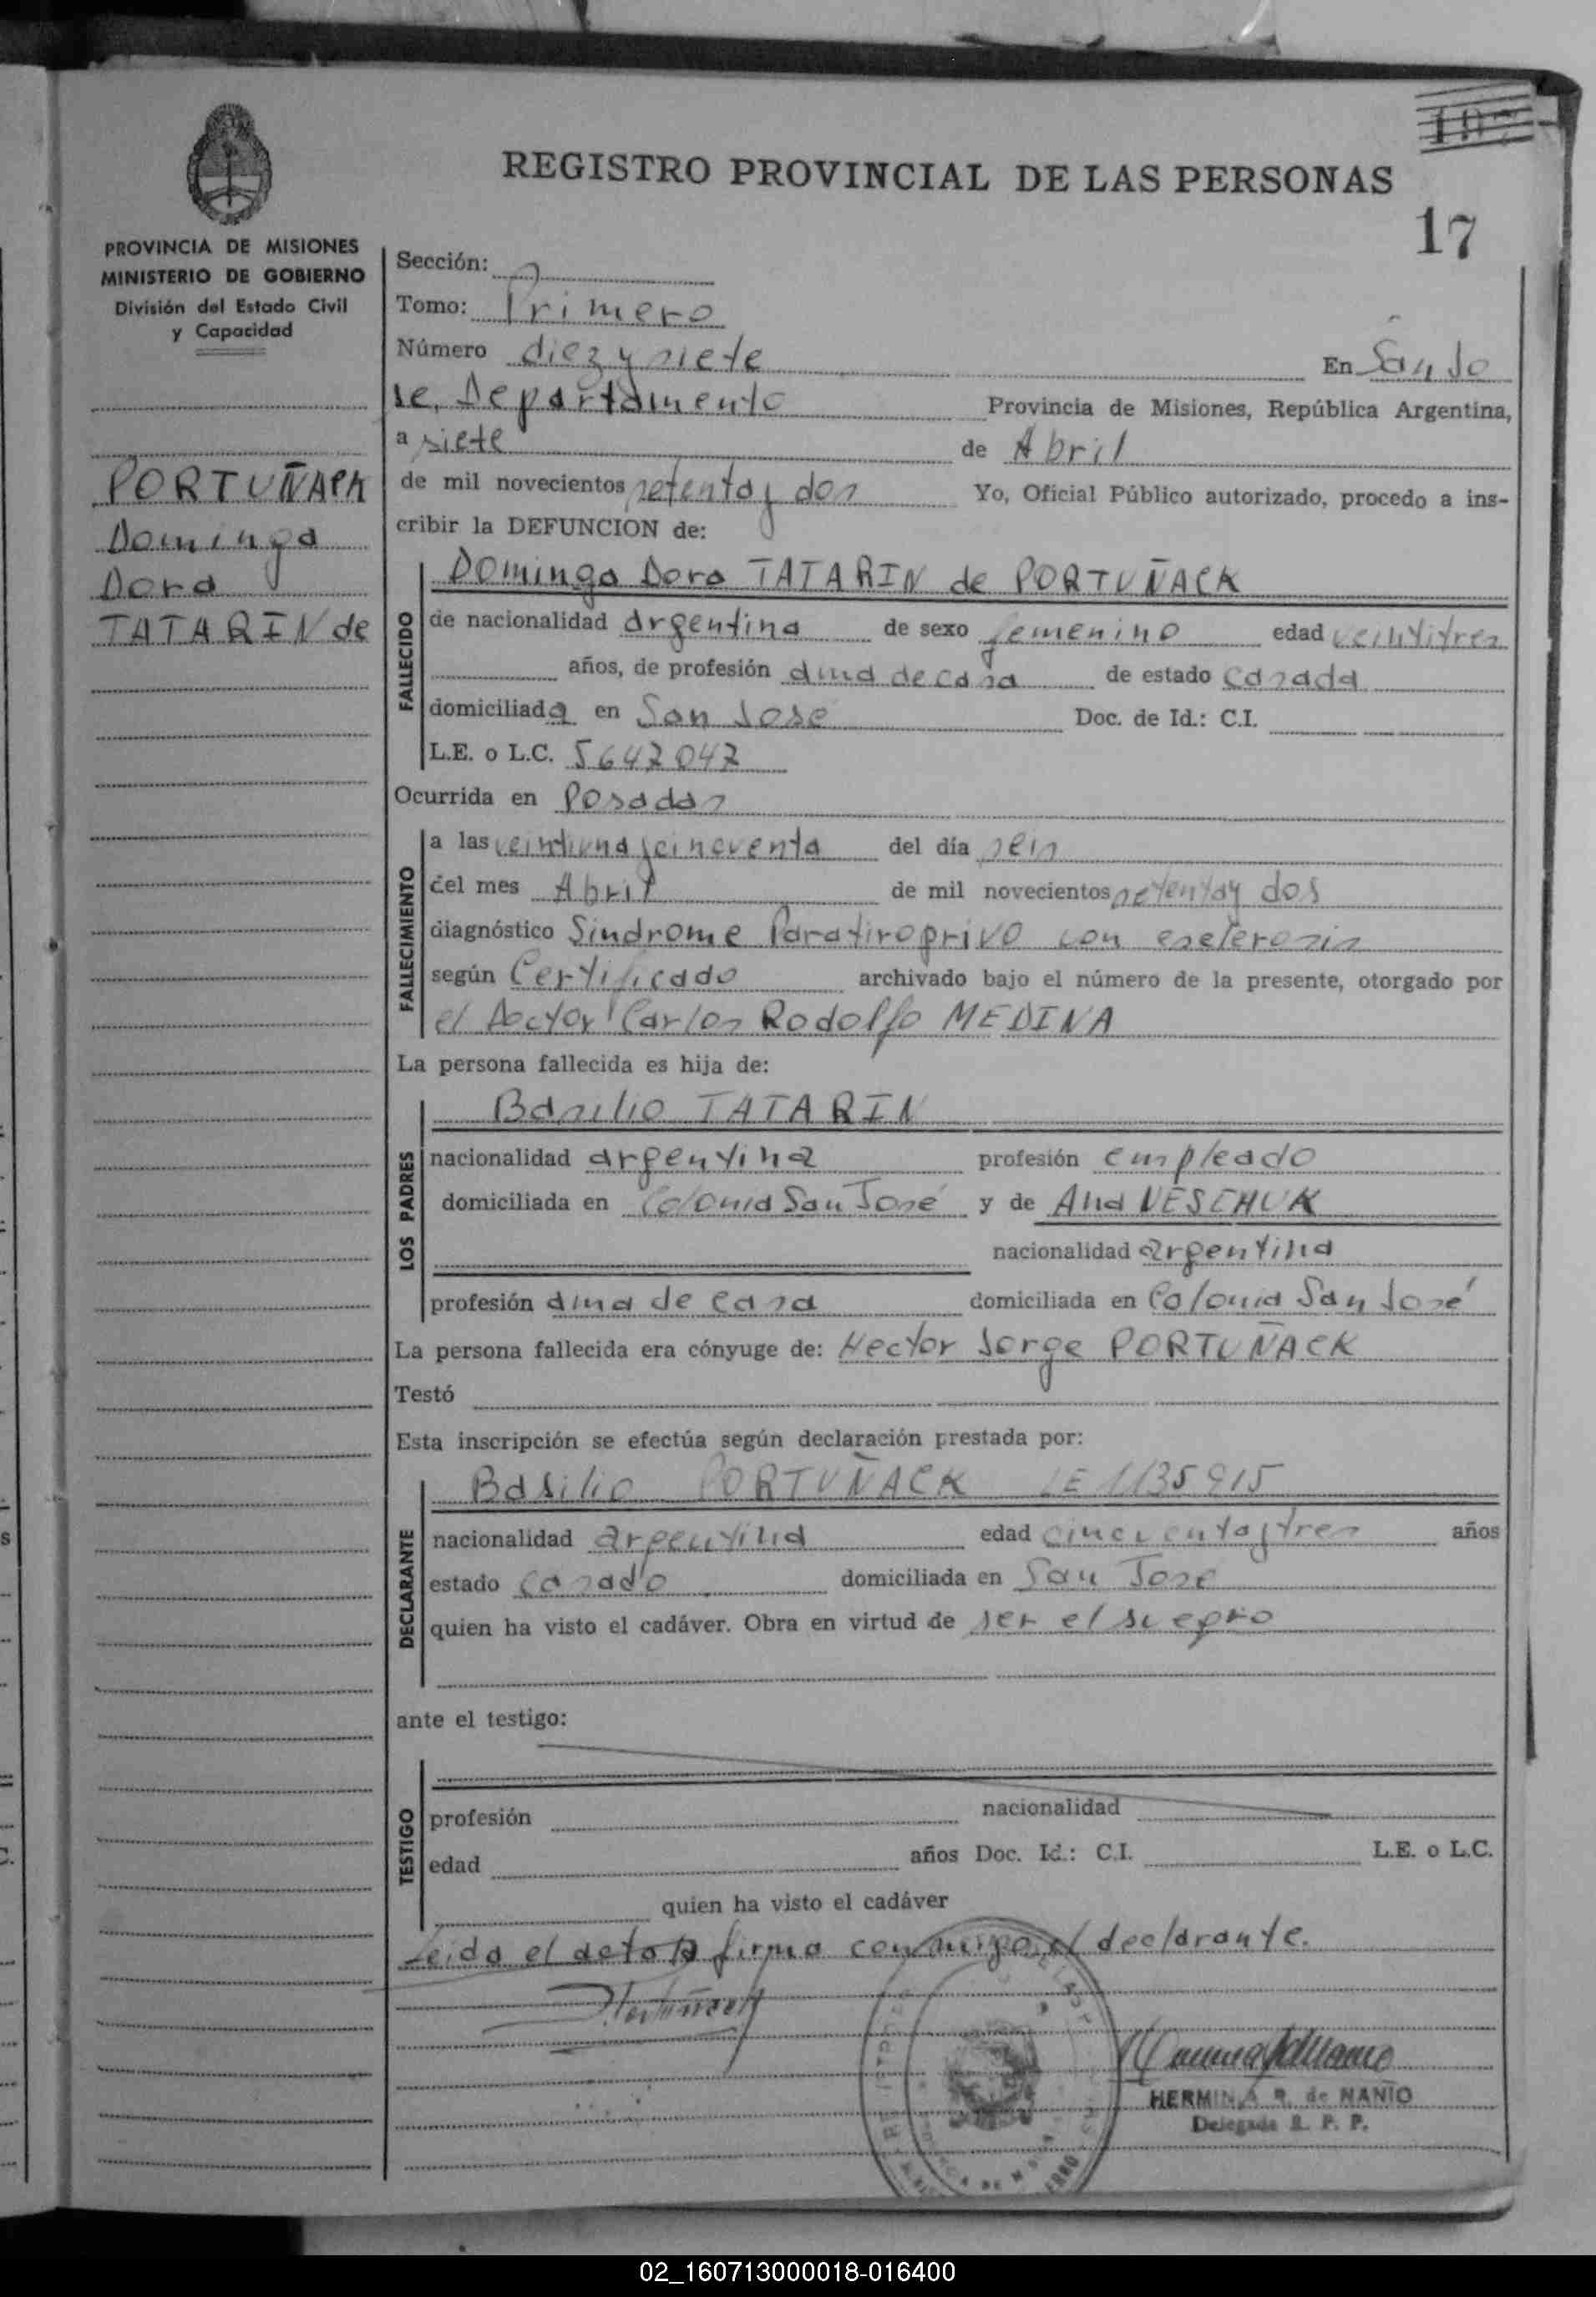 107
REGISTRO PROVINCIAL DE LAS PERSONAS
17
PROVINCIA DE MISIONES
MINISTERIO DE GOBIERNO
División del Estado Civil
y Capacidad
PORTUÑACK
Dominga
Dora
TATARIN de
Sección:
Tomo: Primero
Número diez y siete En San Jo
se, Departamento Provincia de Misiones, República Argentina,
a siete de Abril
de mil novecientos setenta y dos Yo, Oficial Público autorizado, procedo a ins-
cribir la DEFUNCION de:
FALLECIDO
Dominga Dora TATARIN de PORTUÑACK
de nacionalidad argentina de sexo femenino edad veintitres
años, de profesión ama de casa de estado casada
domiciliada en San José Doc. de Id.: C.I.
L.E. o L.C. 5642042
Ocurrida en Posadas
FALLECIMIENTO
a las veintiuna y cincuenta del día seis
del mes Abril de mil novecientos setenta y dos
diagnóstico Sindrome Paratiroprivo con esclerosis
según Certificado archivado bajo el número de la presente, otorgado por
el Doctor Carlos Rodolfo MEDINA
La persona fallecida es hija de:
LOS PADRES
Basilio TATARIN
nacionalidad argentina profesión empleado
domiciliada en Colonia San José y de Ana NESCHUK
nacionalidad argentina
profesión ama de casa domiciliada en Colonia San José
La persona fallecida era cónyuge de: Hector Jorge PORTUÑACK
Testó
Esta inscripción se efectúa según declaración prestada por:
DECLARANTE
Basilio PORTUÑACK LE 1135915
nacionalidad argentina edad cincuenta y tres años
estado casado domiciliada en San José
quien ha visto el cadáver. Obra en virtud de ser el suegro
ante el testigo:
TESTIGO
profesión nacionalidad
edad años Doc. Id.: C.I. L.E. o L.C.
quien ha visto el cadáver
Leida el acta la firma conmigo el declarante.
HERMINIA R. de NANIO
Delegada R. P. P.
02_160713000018-016400